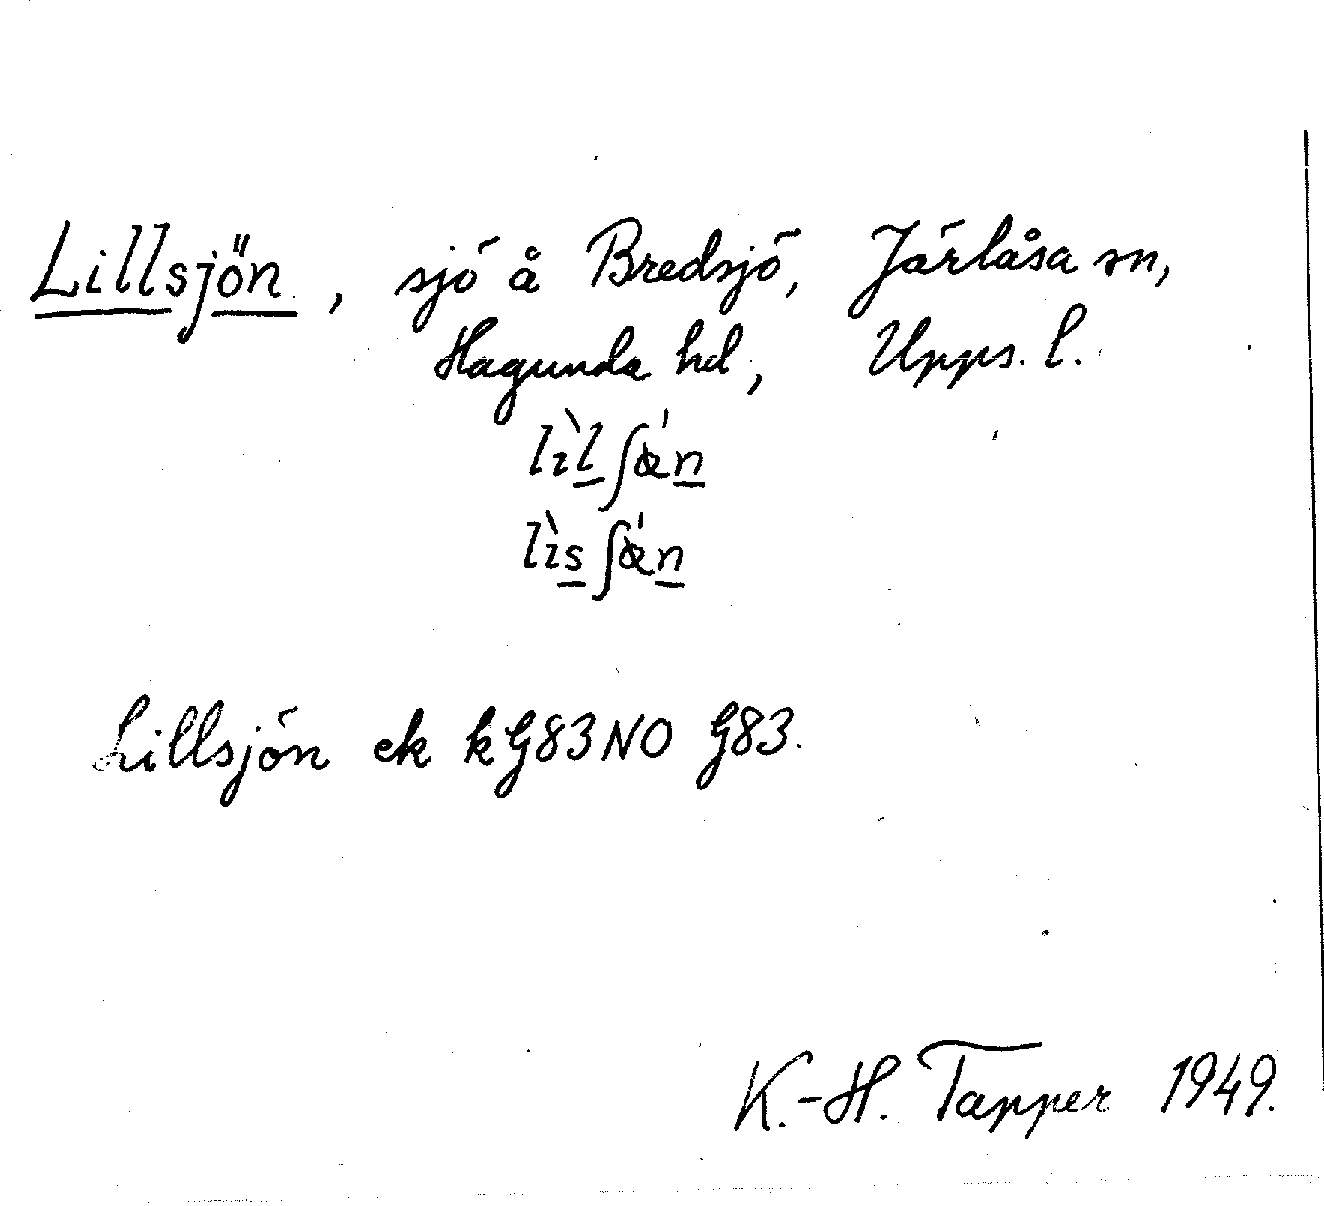 Lillsjön, sjö å Bredsjö, Järlåsa sn,
Hagunda hd, Upps. l.
Lillsjön ek kG83NO G83.
K.-H. Tapper 1949.